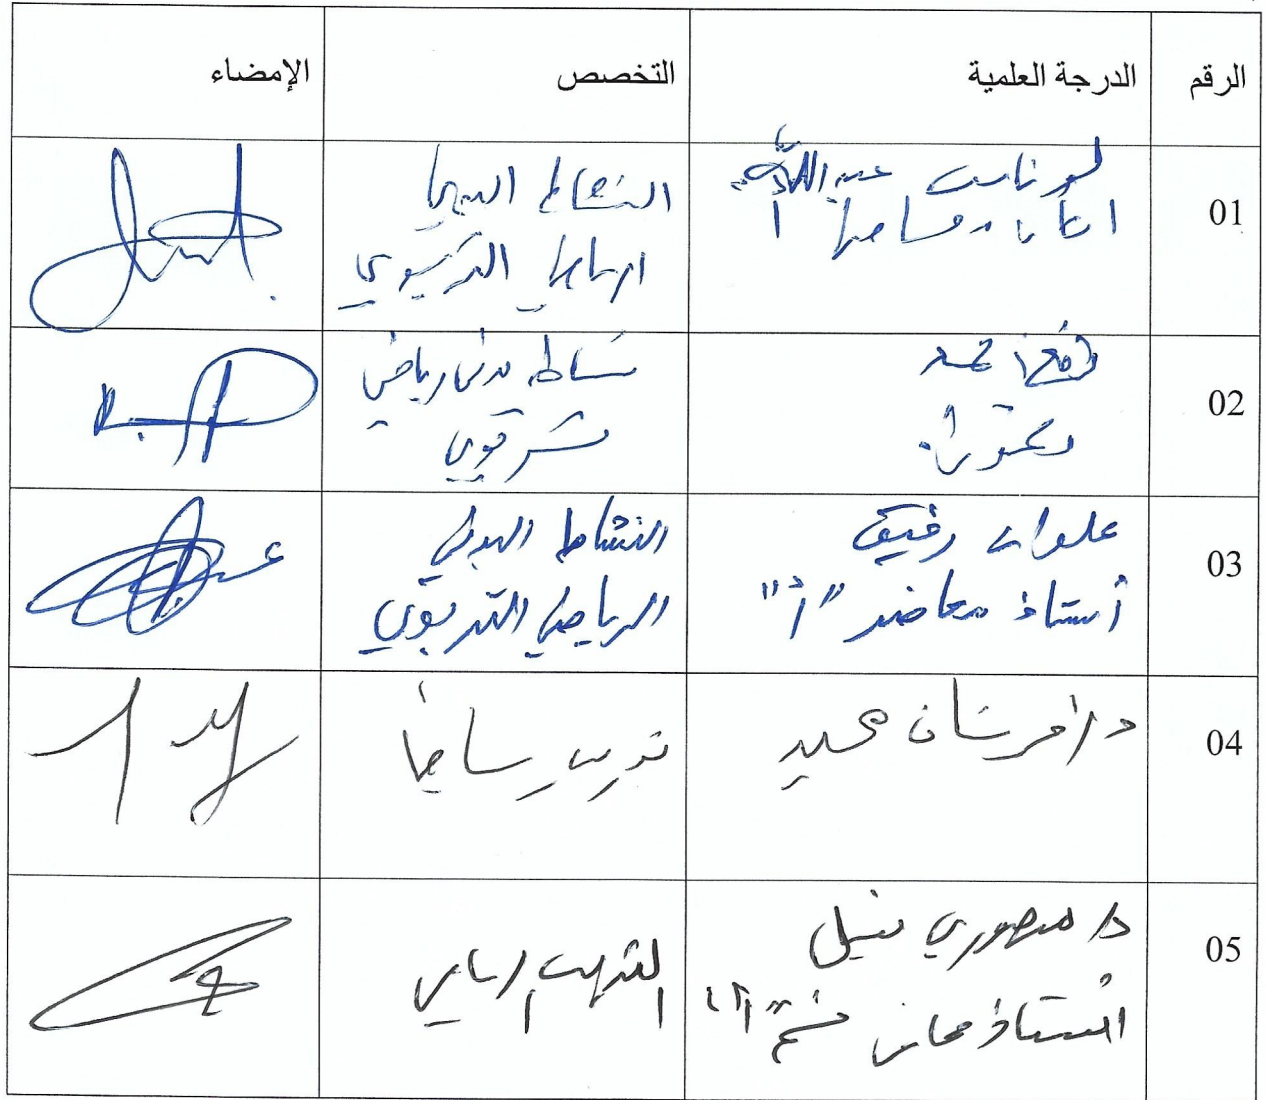 الرقم الدرجة العلمية التخصص الإمضاء
01
عبد الله
النشاط البدني
الرياضي التربوي
02
دكتوراه
نشاط بدني رياضي
تربوي
03
علوان رفيق
أستاذ محاضر "أ"
النشاط البدني
الرياضي التربوي
04
تدريب رياضي
05
د/ منصوري نبيل
أستاذ محاضر قسم "أ"
التدريب الرياضي